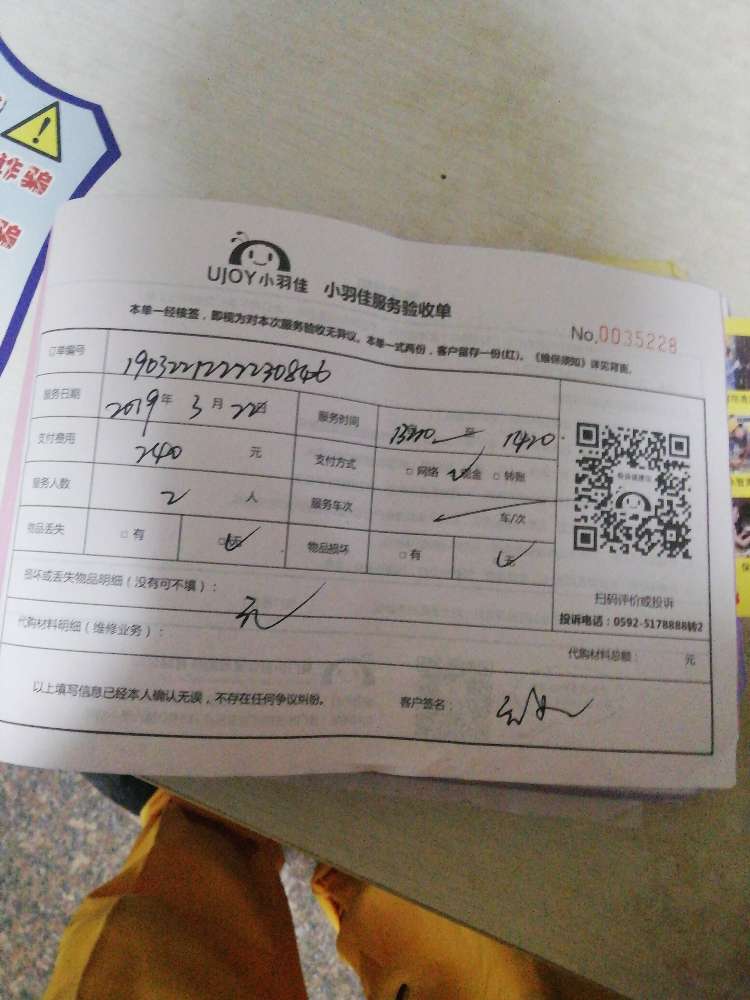 诈骗
骗
UJOY小羽佳 小羽佳服务验收单
No.0035228
本单一经核签，即视为对本次服务验收无异议。本单一式两份，客户留存一份(红)。《维保须知》详见背面。
订单编号 1903221222230846
服务日期 2019年3月22日 服务时间 1320至1420
支付费用 240元 支付方式 □网络 现金 □转账
服务人数 2人 服务车次 车/次
物品丢失 □有 □无 物品损坏 □有 无
损坏或丢失物品明细（没有可不填）：
无
代购材料明细（维修业务）：
代购材料总额： 元
扫码评价或投诉
投诉电话：0592-5178888转2
以上填写信息已经本人确认无误，不存在任何争议纠纷。 客户签名：